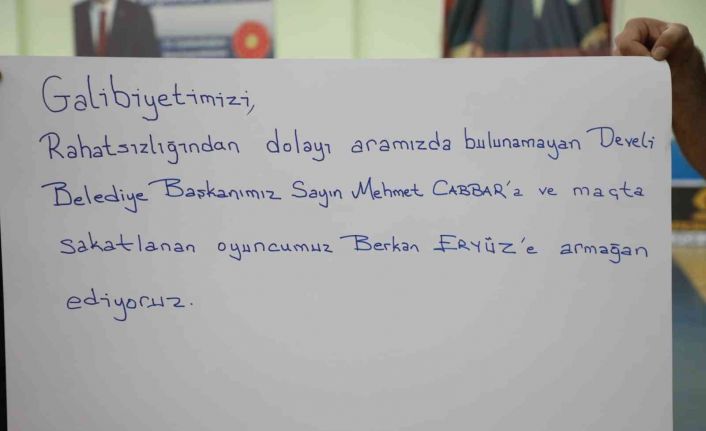 Galibiyetimizi,
Rahatsızlığından dolayı aramızda bulunamayan Develi
Belediye Başkanımız Sayın Mehmet CABBAR'a ve maçta
sakatlanan oyuncumuz Berkan ERYÜZ'e armağan
ediyoruz.